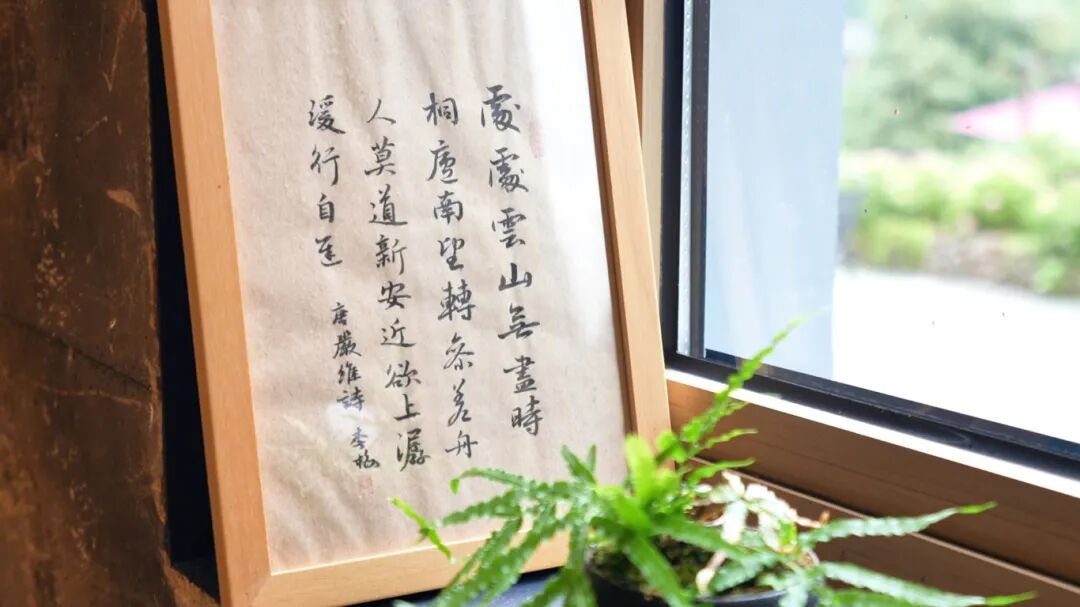 處處雲山無盡時
桐廬南望轉參差舟
人莫道新安近欲上潺
湲行自遲
唐嚴維詩 李楊